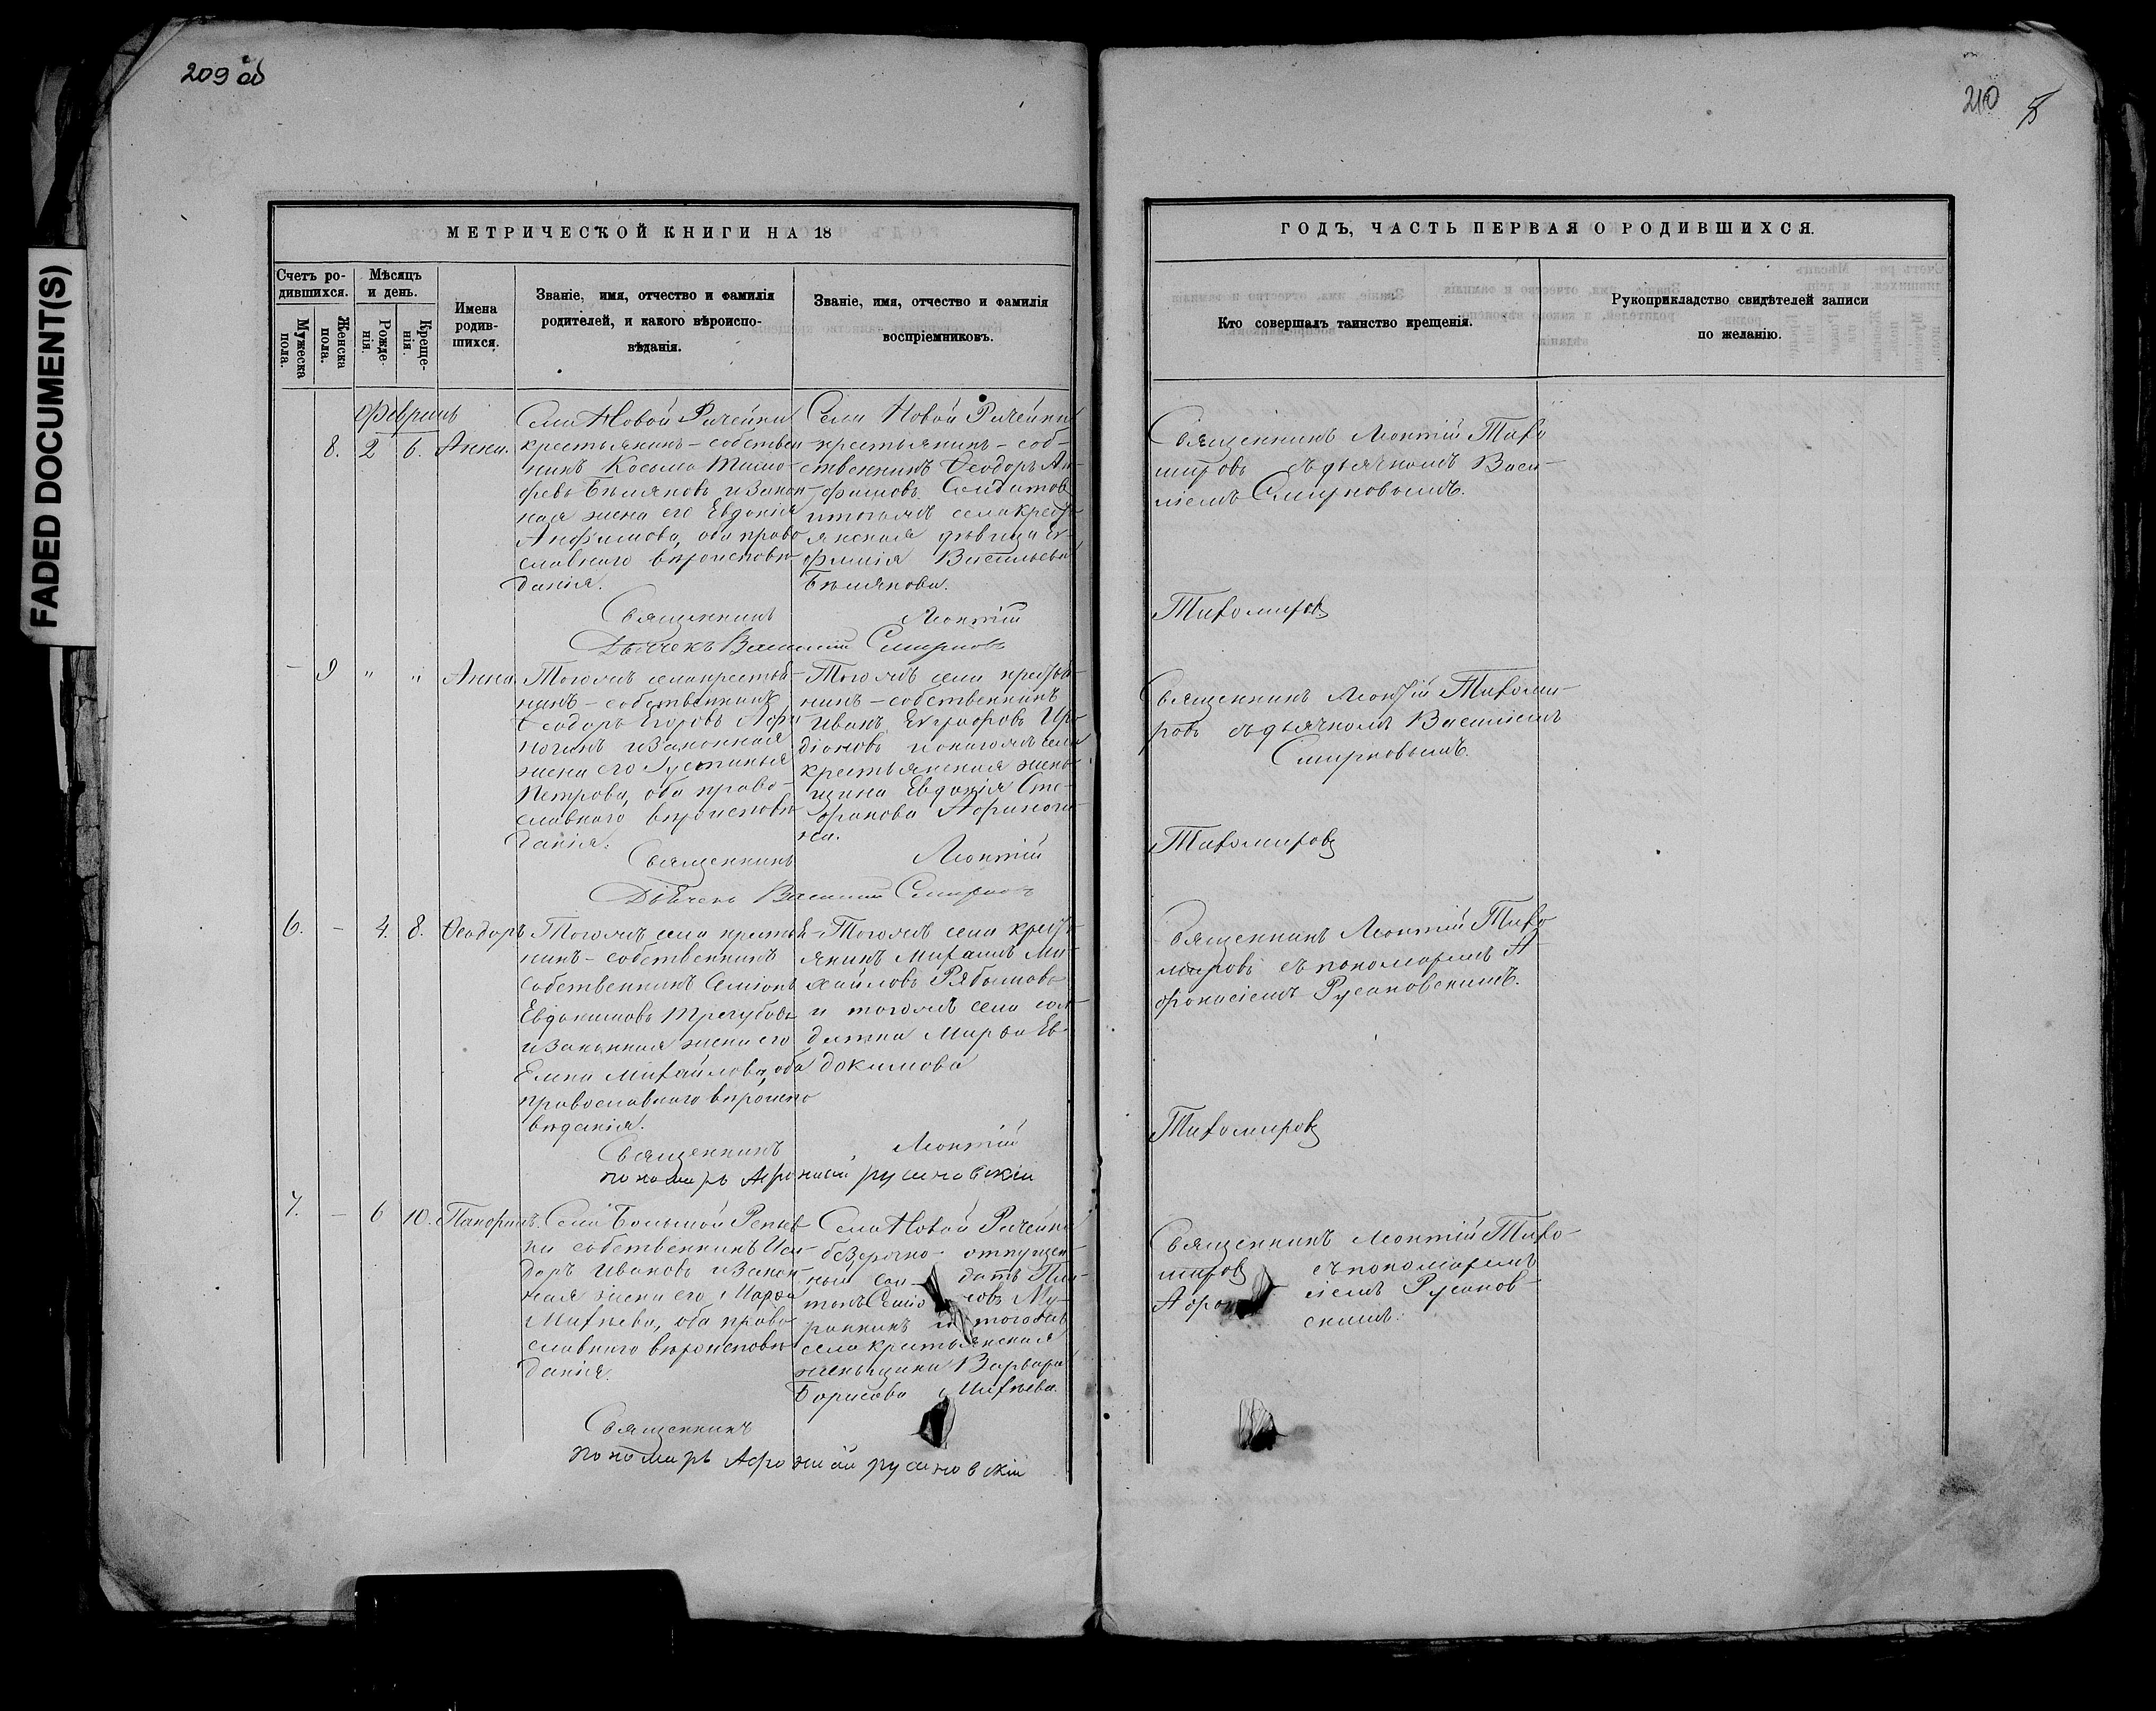 209 об
210
FADED DOCUMENT(S)
МЕТРИЧЕСКОЙ КНИГИ НА 18
Счетъ ро-
дившихся.
Мужеска
пола.
Женска
пола.
Мѣсяцъ
и день.
Рожде-
нія.
Креще-
нія.
Имена
родив-
шихся.
Званіе, имя, отчество и фамилія
родителей, и какого вѣроиспо-
вѣданія.
Званіе, имя, отчество и фамилія
воспріемниковъ.
Февраль
8. 2 6. Анна.
Села Новой Рачейки
крестьянинъ-собствен
никъ Косьма Тимо-
феевъ Бѣляковъ и закон
ная жена его Евдокія
Анфимова, оба право
славнаго вѣроисповѣ
данія.
Села Новой Рачейки
крестьянинъ-соб-
ственникъ Ѳеодоръ Ан-
фимовъ
тогожъ села крест
янская дѣвица Ев-
фимія Васильева
Бѣлякова.
Священникъ Леонтій
Дьячекъ Василій Смирновъ
- 9 " " Анна.
Тогожъ села крестья-
нинъ-собственникъ
Ѳеодоръ Егоровъ Афи
ногинъ и законная
жена его Іустинья
Петрова, оба право-
славнаго вѣроисповѣ
данія.
Тогожъ села крестья-
нинъ-собственникъ
Иванъ Евграфовъ Иро
діоновъ и тогожъ села
крестьянская жен-
щина Евдокія Сте-
фанова Афиноги-
на.
Священникъ Леонтій
Дьячекъ Василій Смирновъ
6. - 4. 8. Ѳеодоръ
Тогожъ села крестья-
нинъ-собственникъ
собственникъ Семіонъ
Евдокимовъ Трегубовъ
и законная жена его
Елена Михайлова, оба
православнаго вѣроиспо
вѣданія.
Тогожъ села крест-
янинъ Михаилъ Ми-
хайловъ Рябышовъ
и тогожъ села сол-
датка Марѳа Ев-
докимова
Священникъ Леонтій
пономарь Афонасій русановскій
7. - 6 10. Панфилъ.
Села Большой Репьев
ки собственникъ Иси-
доръ Ивановъ и закон-
ная жена его Марѳа
Михѣева, оба право
славнаго вѣроисповѣ
данія.
Села Новой Рачейки
безсрочно-отпущен-
ный сол- датъ Пла-
тонъ Семіо новъ Му-
ранкинъ и тогожъ
села крестьянская
женьщина Варвара
Борисова Михѣева.
Священникъ
пономарь Афонасій русановскій
ГОДЪ, ЧАСТЬ ПЕРВАЯ О РОДИВШИХСЯ.
Кто совершалъ таинство крещенія.
Рукоприкладство свидѣтелей записи
по желанію.
Священникъ Леонтій Тихо
мировъ съ дьячкомъ Васи-
ліемъ Смирновымъ.
Тихомировъ
Священникъ Леонтій Тихоми-
ровъ съ дьячкомъ Василіемъ
Смирновымъ.
Тихомировъ
Священникъ Леонтій Тихо
мировъ съ пономаремъ А-
фонасіемъ Русановскимъ.
Тихомировъ
Священникъ Леонтій Тихо-
мировъ съ пономаремъ
Афон сіемъ Русанов-
скимъ.